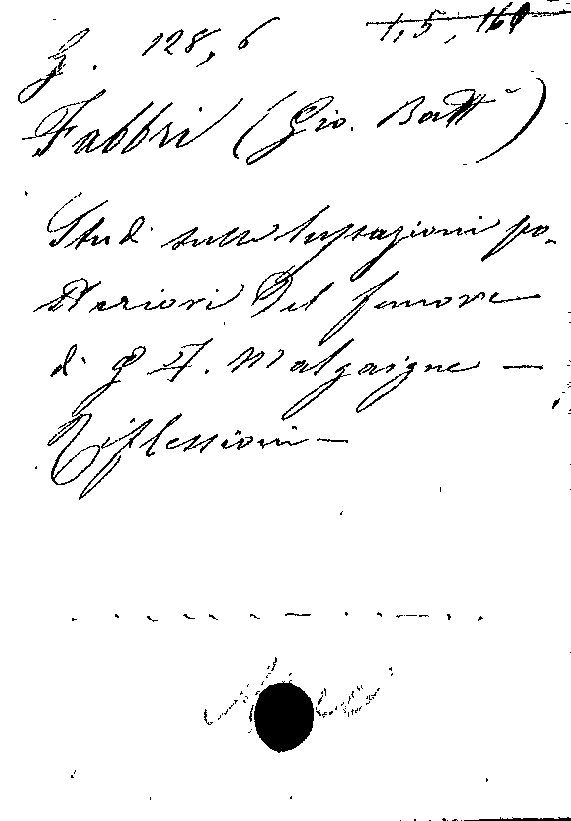 G. 128, 6 1, 5, 160
Fabbri (Gio. Batt)
Studi sulle lussazioni po-
steriori del femore
di G F. Malgaigne —
Riflessioni —